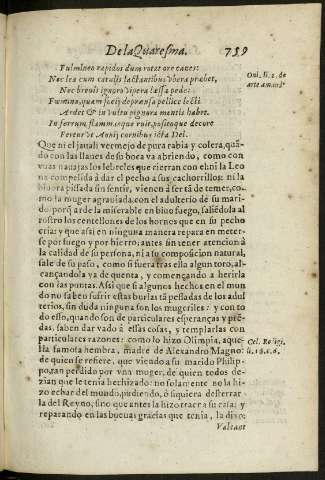 De la Quaresma. 759
Fulmineo rapidos dum rotat ore canes:
Nec lea cum catulis lactantibus vbera præbet,
Nec breuis ignaro vipera læsa pede:
Fœmina, quam socij deprensa pellice lecti
Ardet & in vultu pignora mentis habet.
In ferrum flammasque ruit, positoque decore
Fertur vt Aonij cornibus icta Dei.
Oui. li. 2. de
arte amand.
Que ni el jauali vermejo de pura rabia y colera, quā-
do con las llaues de su boca va abriendo, como con
vnas nauajas los lebreles que cierran con el: ni la Leo
na compelida à dar el pecho a sus cachorrillos: ni la
biuora pisada sin sentir, vienen à ser tā de temer, co-
mo la muger agrauiada, con el adulterio de su mari-
do: porq̄ arde la miserable en biuo fuego, saliēdola al
rostro los centellones de los hornos que en su pecho
cria: y que asi en ninguna manera repara en meter-
se por fuego y por hierro, antes sin tener atencion à
la calidad de su persona, ni a su composicion natural,
sale de su paso, como si fuera tras ella algun toro, al-
cançandola ya de quenta, y començando a herirla
con las puntas. Asi que si algunos hechos en el mun
do no saben sufrir estas burlas tā pesadas de los adul
terios, sin duda ninguna son los mugeriles: y con to
do esso, quando son de particulares esperanças y prē-
das, saben dar vado à essas cosas, y templarlas con
particulares razones: como lo hizo Olimpia, aque-
lla famosa hembra, madre de Alexandro Magno:
Cel. Rodigi.
li. 16. c. 6.
de quien se refiere, que viendo a su marido Philip-
po, tan perdido por vna muger, de quien todos de-
zian que le tenia hechizado: no solamente no la hi-
zo echar del mundo, pudiendo, ò siquiera desterrar-
la del Reyno, sino que antes la hizo traer a su casa: y
reparando en las buenas gracias que tenia, la dixo:
Valeant